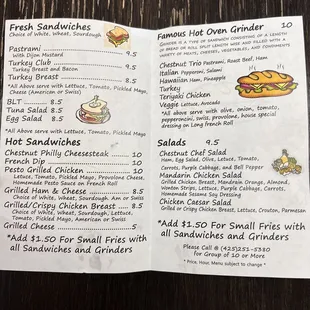 Fresh Sandwiches
Choice of White, Wheat, Sourdough
Pastrami 9.5
with Dijon Mustard
Turkey Club 9.5
Turkey Breast and Bacon
Turkey Breast 8.5
*All Above serve with Lettuce, Tomato, Pickled Mayo
cheese (American or Swiss)
BLT 8.5
Tuna Salad 8.5
Egg Salad 8.5
*All Above serve with Lettuce, Tomato, Pickled Mayo
Hot Sandwiches
Chestnut Philly Cheesesteak 10
French Dip 10
Pesto Grilled Chicken 10
Lettuce, Tomato, Pickled Mayo, Provolone Cheese,
Homemade Pesto Sauce on French Roll
Grilled Ham & Cheese 8.5
Choice of White, Wheat, Sourdough, Am or Swiss
Grilled/Crispy Chicken Breast 8.5
Choice of White, Wheat, Sourdough, Lettuce,
Tomato, Pickled Mayo, American or Swiss
Grilled Cheese 5
*Add $1.50 For Small Fries with
all Sandwiches and Grinders
Famous Hot Oven Grinder 10
Grinders is a type of sandwich consisting of a length
of bread or roll split length wise and filled with a
variety of meats, cheeses, vegetables, and condiments
Chestnut Trio Pastrami, Roast Beef, Ham
Italian Pepperoni, Salami
Hawaiian Ham, Pineapple
Turkey
Teriyaki Chicken
Veggie Lettuce, Avocado
*All above serve with olive, onion, tomato,
pepperoncini, swiss, provolone, house special
dressing on Long french Roll
Salads 9.5
Chestnut Chef Salad
Ham, Egg Salad, Olive, Lettuce, Tomato,
Carrots, Purple Cabbage, and Bell Pepper
Mandarin Chicken Salad
Grilled Chicken Breast, Mandrain Orange, Almond,
Wonton Strips, Lettuce, Purple Cabbage, Carrots,
Homemade Sesame Soy Dressing
Chicken Caesar Salad
Grilled or Crispy Chicken Breast, Lettuce, Crouton, Parmesan
*Add $1.50 For Small Fries with
all Sandwiches and Grinders
Please Call @ (425)251-5380
for Group of 10 or More
* Price, Hour, Menu subject to change *